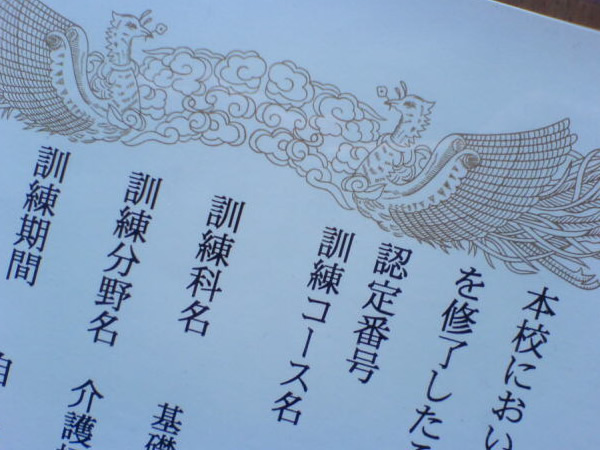 本校におい
を修了した
認定番号
訓練コース名
訓練科名 基礎
訓練分野名 介護
訓練期間 自